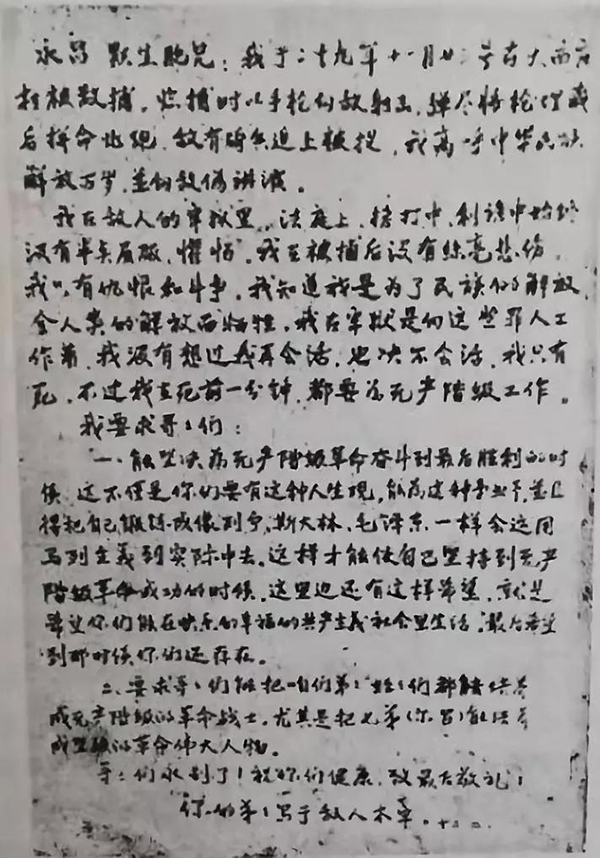 永昌 默生胞兄：我于二十九年十一月廿二号在大西庄
村被敌捕，恁捕时以手枪向敌射击，弹尽将枪埋藏
后拼命出现，敌有骑兵追上被捉，我高呼中华民族
解放万岁，并向敌伪讲演。
我在敌人的牢狱里，法庭上，榜打中，利诱中始终
没有半点屈服，惧怕，我至被捕后没有丝毫悲伤，
我只有仇恨和斗争，我知道我是为了民族的解放，
全人类的解放而牺牲，我在牢狱是向这些罪人工
作着，我没有想过我再会活，也决不会活，我只有
死，不过我至死前一分钟，都要为无产阶级工作。
我要求哥：们：
一、能坚决为无产阶级革命奋斗到最后胜利的时
候，这不仅是你们要有这种人生观，能为这种事业干，并且
得把自己锻练成像列宁、斯大林、毛泽东一样会运用
马列主义到实际中去。这样才能使自己坚持到无产
阶级革命成功的时候，这里边还有这样希望，就是
希望你们能在快乐的幸福的共产主义社会里生活，最后希望
到那时候你们还存在。
二、要求哥：们能把咱们弟：姪：们都能培养
成无产阶级的革命战士，尤其是把七弟（尔昌）能培养
成坚强的革命伟大人物。
哥：们永别了！祝你们健康，致最后敬礼！
你的弟：写于敌人木牢